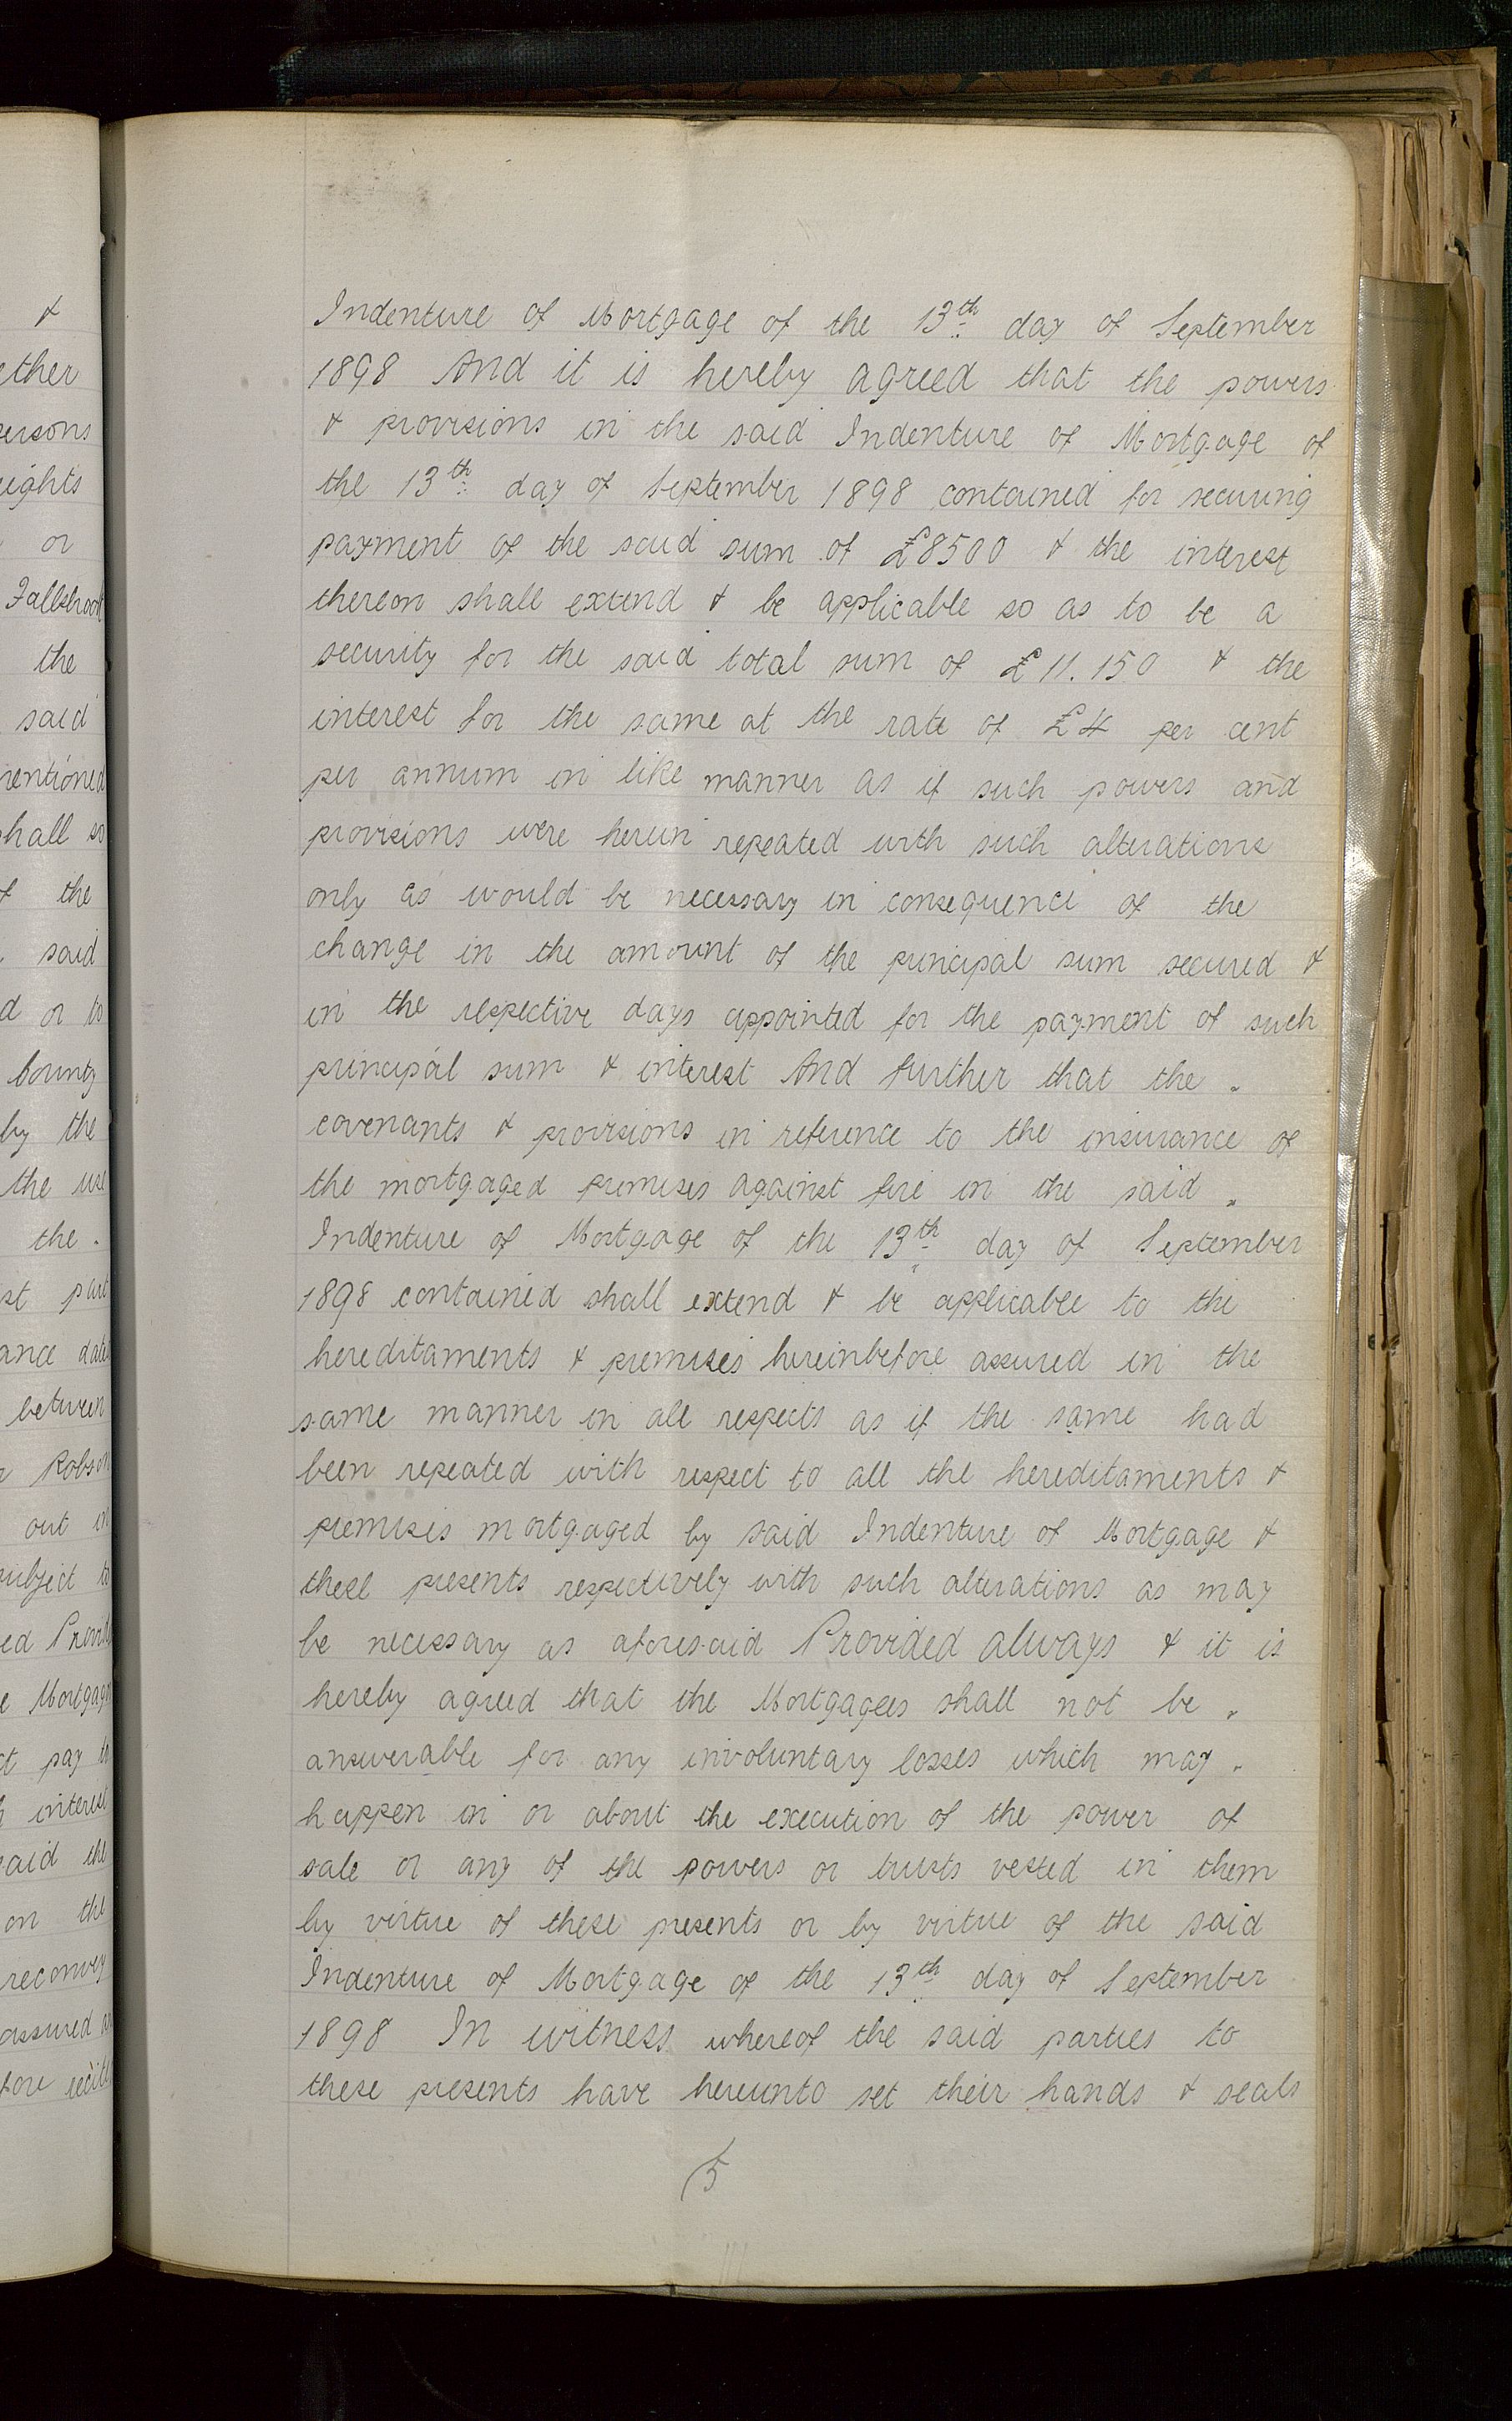 Indenture of Mortgage of the 13th day of September
1898 And it is hereby agreed that the powers
& provisions in the said Indenture of Mortgage of
the 13th day of September 1898 contained for securing
payment of the said sum of £8500 & the interest
thereon shall extend & be applicable so as to be a
security for the said total sum of £11.150 & the
interest for the same at the rate of £4 per cent
per annum in like manner as if such powers and
provisions were herein repeated with such alterations
only as would be necessary in consequence of the
change in the amount of the principal sum secured &
in the respective days appointed for the payment of such
principal sum & interest And further that the
covenants & provisions in reference to the insurance of
the mortgaged premises against fire in the said
Indenture of Mortgage of the 13th day of September
1898 contained shall extend & be applicable to the
hereditaments & premises hereinbefore assured in the
same manner in all respects as if the same had
been repeated with respect to all the hereditaments &
premises mortgaged by said Indenture of Mortgage &
these presents respectively with such alterations as may
be necessary as aforesaid Provided always & it is
hereby agreed that the Mortgagees shall not be
answerable for any involuntary losses which may
happen in or about the execution of the power of
sale or any of the powers or trusts vested in them
by virtue of these presents or by virtue of the said
Indenture of Mortgage of the 13th day of September
1898 In witness whereof the said parties to
these presents have hereunto set their hands & seals
5
&
ether
ersons
eights
or
the
said
mentioned
hall so
of the
said
d or to
County
by the
the use
the
st part
ance date
between
Robson
out in
subject to
ed Provid
e Mortgag
t pay
interest
said the
on the
reconvey
assured
fore recit